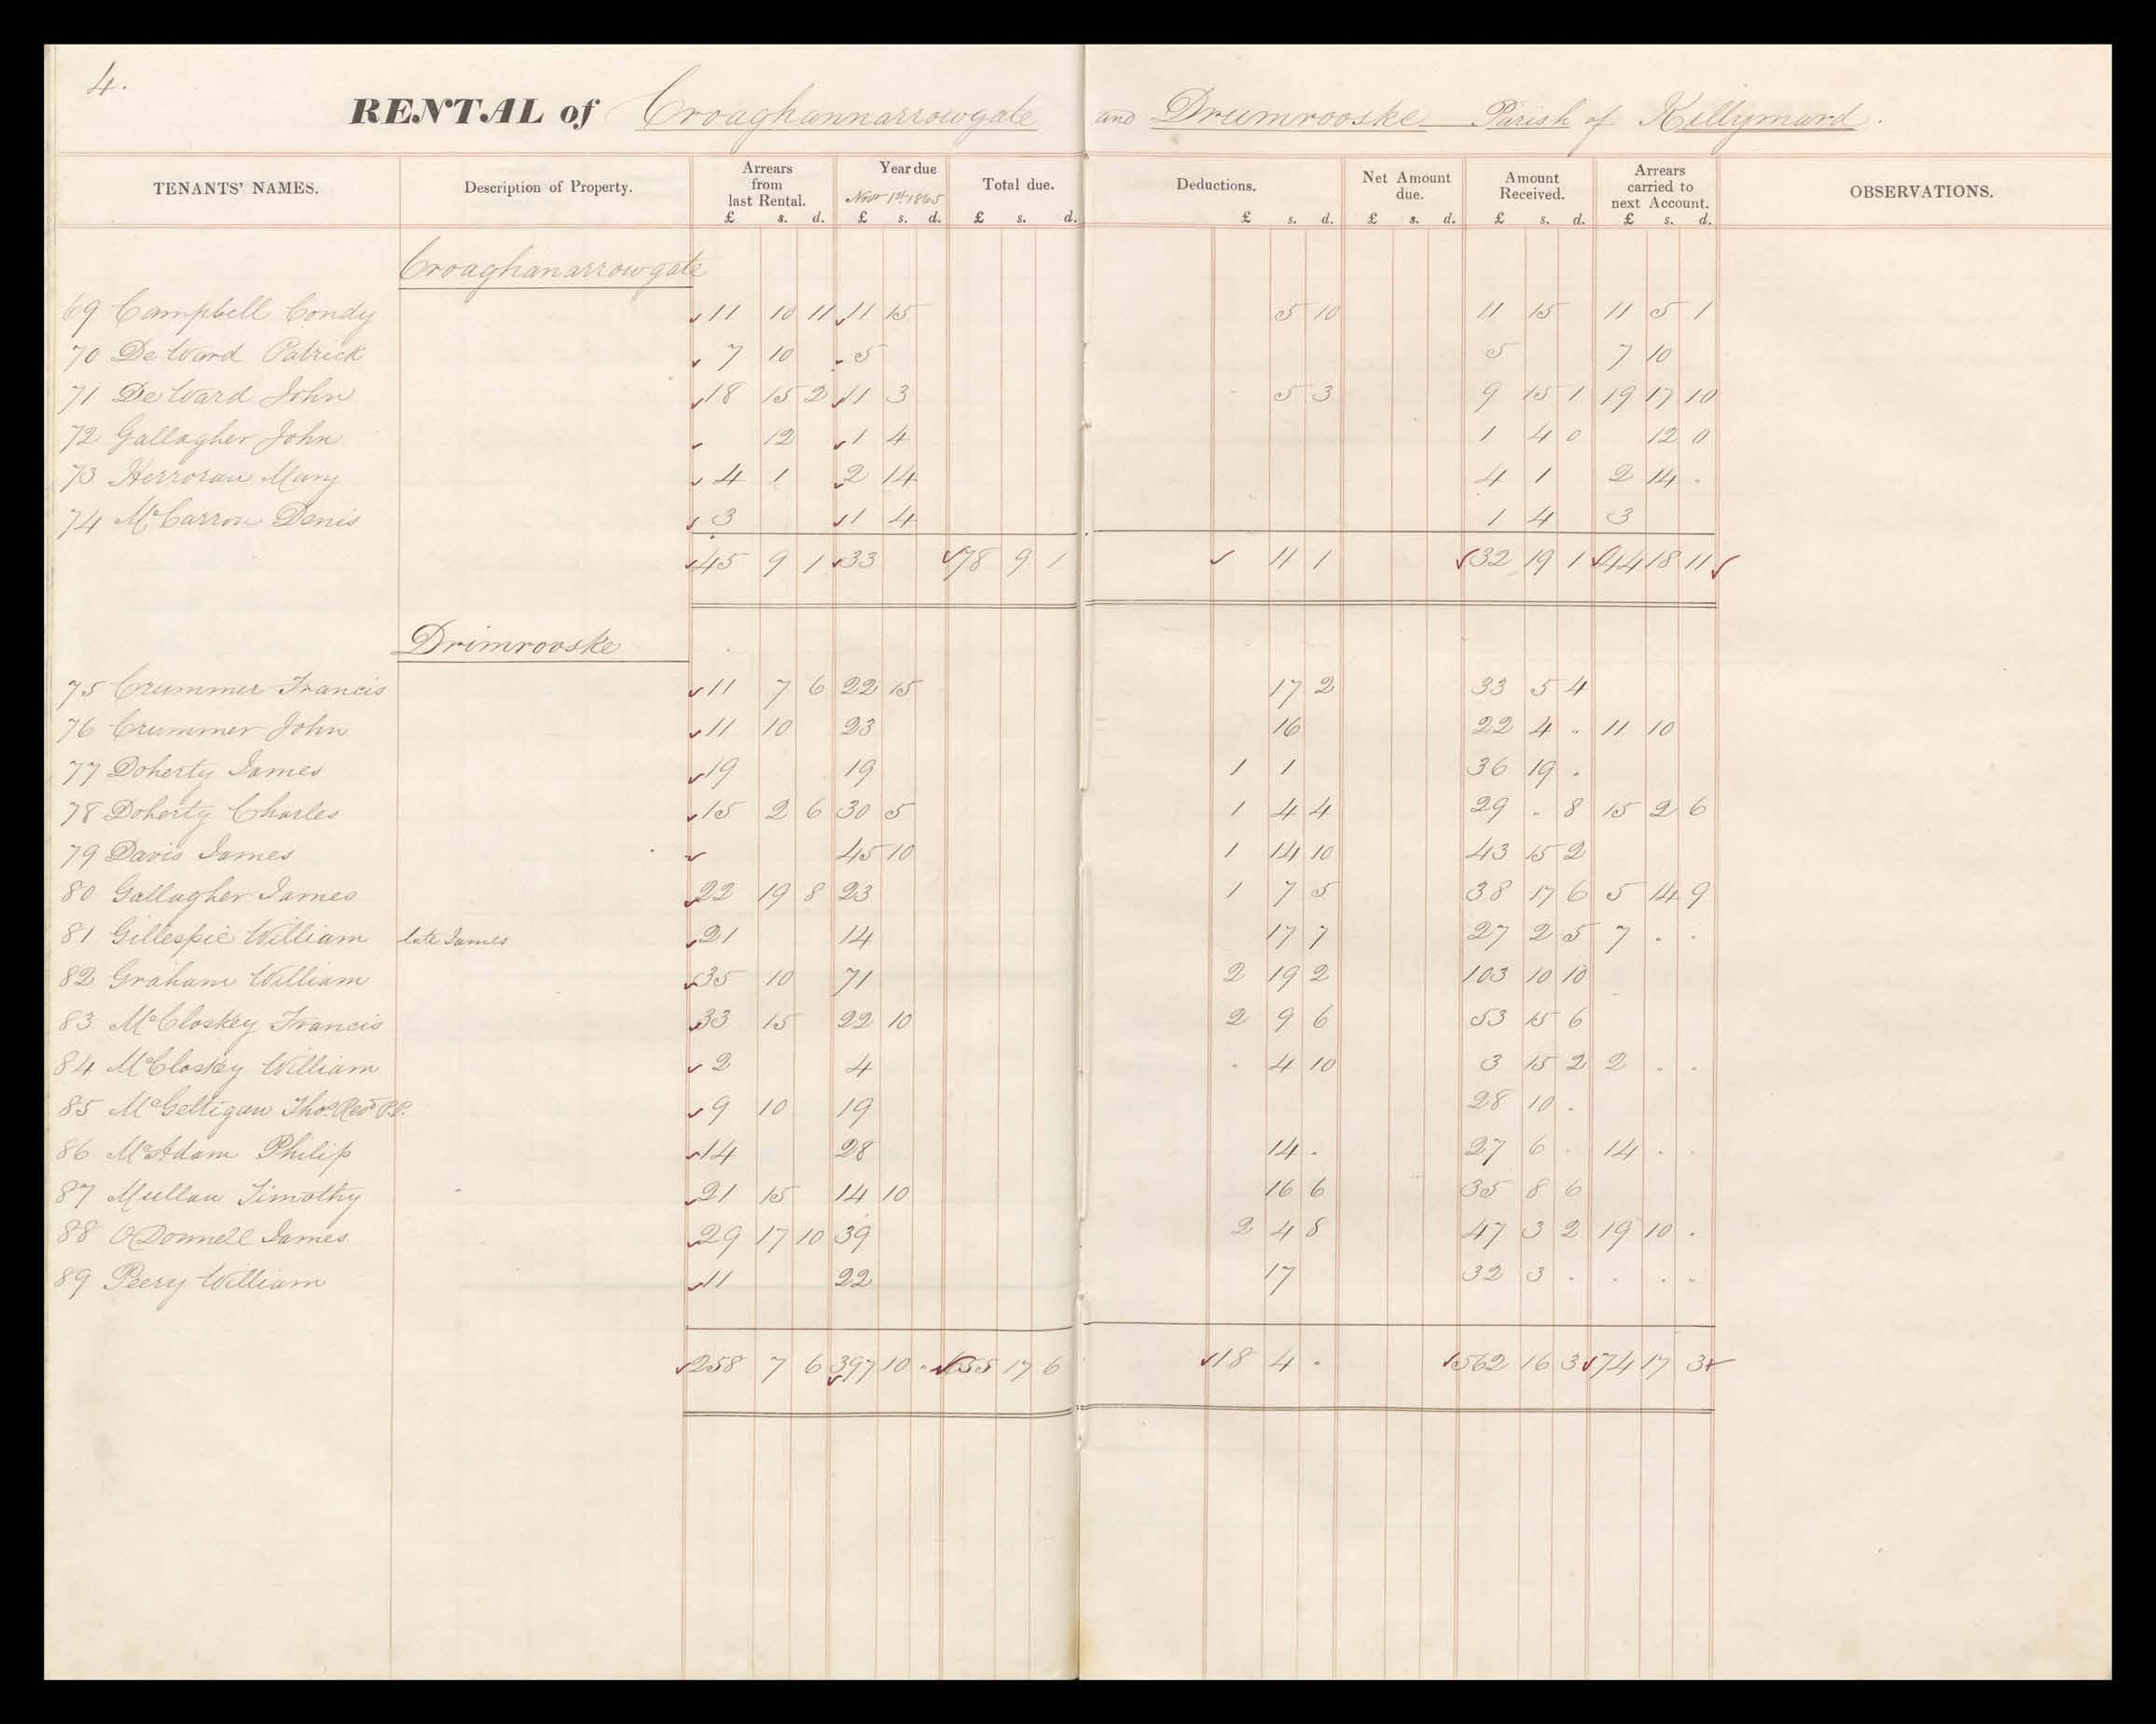 4.
RENTAL of Croaghannarrowgate and Drumrooske Parish of Killymard.
TENANTS' NAMES. Description of Property. Arrears from last Rental. Year due Nov 1st 1865 Total due. Deductions. Net Amount due. Amount Received. Arrears carried to next Account. OBSERVATIONS.
£ s. d. £ s. d. £ s. d. £ s. d. £ s. d. £ s. d. £ s. d.
Croaghanarrowgate
69 Campbell Condy 11 10 11 11 15 5 10 11 15 11 5 1
70 De Ward Patrick 7 10 5 5 7 10
71 De Ward John 18 15 2 11 3 5 3 9 15 1 19 17 10
72 Gallagher John 12 1 4 1 4 0 12 0
73 Herroran Mary 4 1 2 14 4 1 2 14 .
74 McCarron Denis 3 1 4 1 4 3
45 9 1 33 78 9 1 11 1 32 19 1 44 18 11
Drimrooske
75 Crummer Francis 11 7 6 22 15 17 2 33 5 4
76 Crummer John 11 10 23 16 22 4 . 11 10
77 Doherty James 19 19 1 1 36 19 .
78 Doherty Charles 15 2 6 30 5 1 4 4 29 . 8 15 2 6
79 Davis James 45 10 1 14 10 43 15 2
80 Gallagher James 22 19 8 23 1 7 5 38 17 6 5 14 9
81 Gillespie William late James 21 14 17 7 27 2 5 7 . .
82 Graham William 35 10 71 2 19 2 103 10 10
83 McCloskey Francis 33 15 22 10 2 9 6 53 15 6
84 McCloskey William 2 4 . 4 10 3 15 2 2 . .
85 McGettigan Thos. Revd P.P. 9 10 19 28 10 .
86 McAdam Philip 14 28 14 . 27 6 . 14 . .
87 Mullan Timothy 21 15 14 10 16 6 35 8 6
88 O'Donnell James 29 17 10 39 2 4 8 47 3 2 19 10 .
89 Peery William 11 22 17 32 3 . . . .
258 7 6 397 10 . 655 17 6 18 4 . 562 16 3 74 17 3